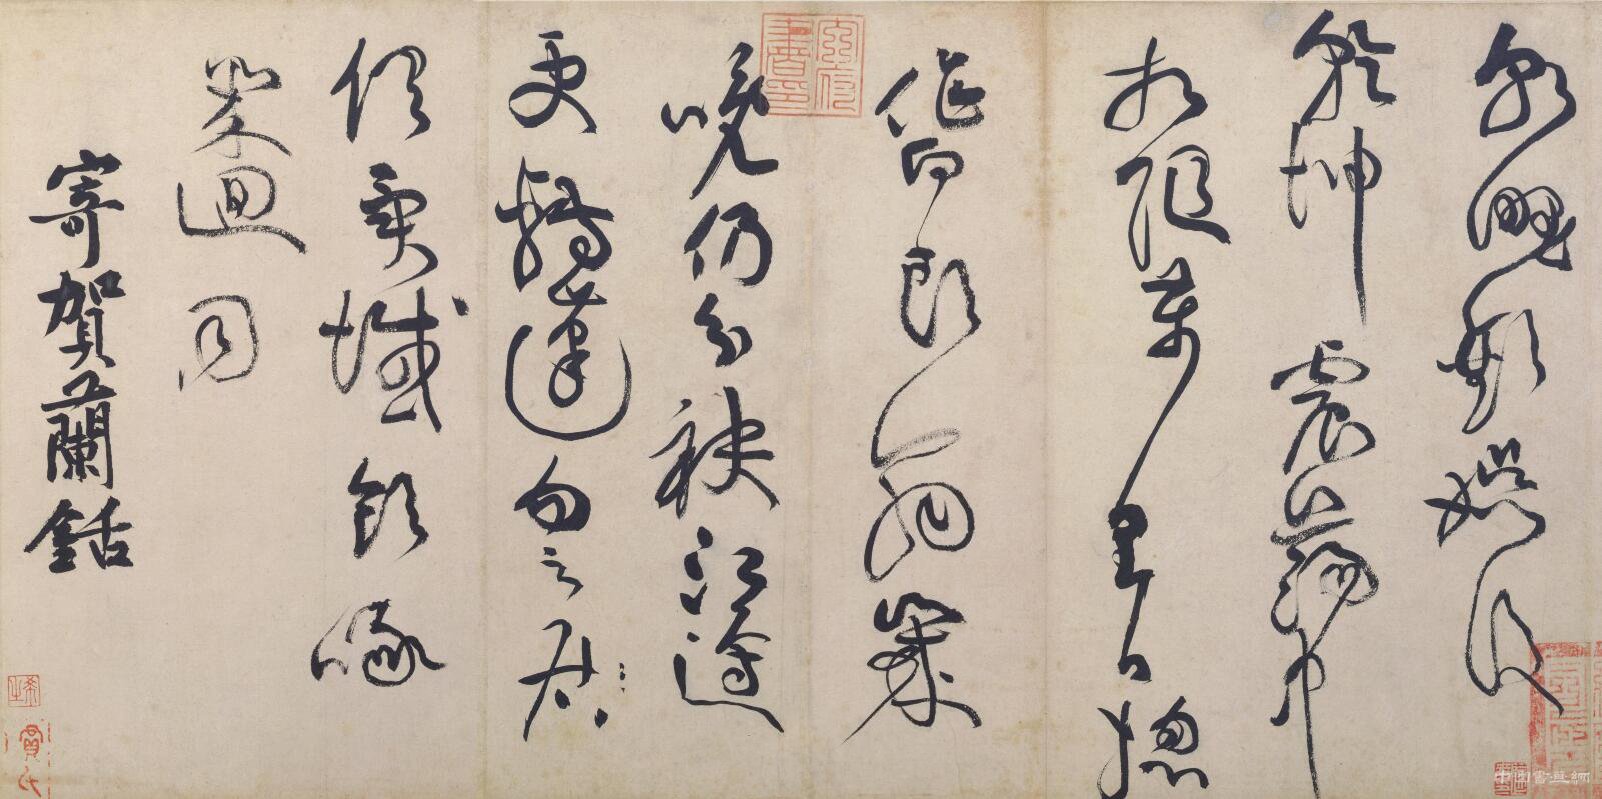 朝野歡娛後
乾坤震蕩中
相隨萬里日總
作白頭翁歲
晚仍分袂江邊
更轉蓬勿云君
俱異域飲啄
幾回同
寄賀蘭銛